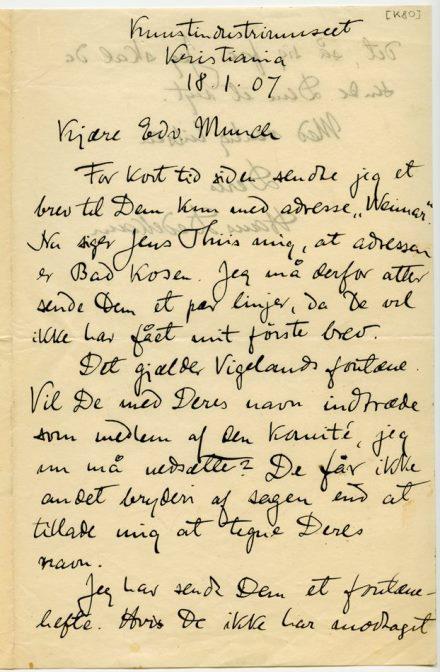 [K80]
Kunstindustrimuseet
Kristiania
18.1.07
Kjære Edv Munch
For kort tid siden sendte jeg et
brev til Dem kun med adresse „Weimar“.
Nu siger Jens Thiis mig, at adressen
er Bad Kösen. Jeg må derfor atter
sende Dem et par linjer, da De vel
ikke har fået mit förste brev.
Det gjælder Vigelands fontæne.
Vil De med Deres navn indtræde
som medlem af den komité, jeg
nu må nedsætte? De får ikke
andet bryderi af sagen end at
tillade mig at tegne Deres
navn.
Jeg har sendt Dem et fontæne-
hefte. Hvis De ikke har modtaget